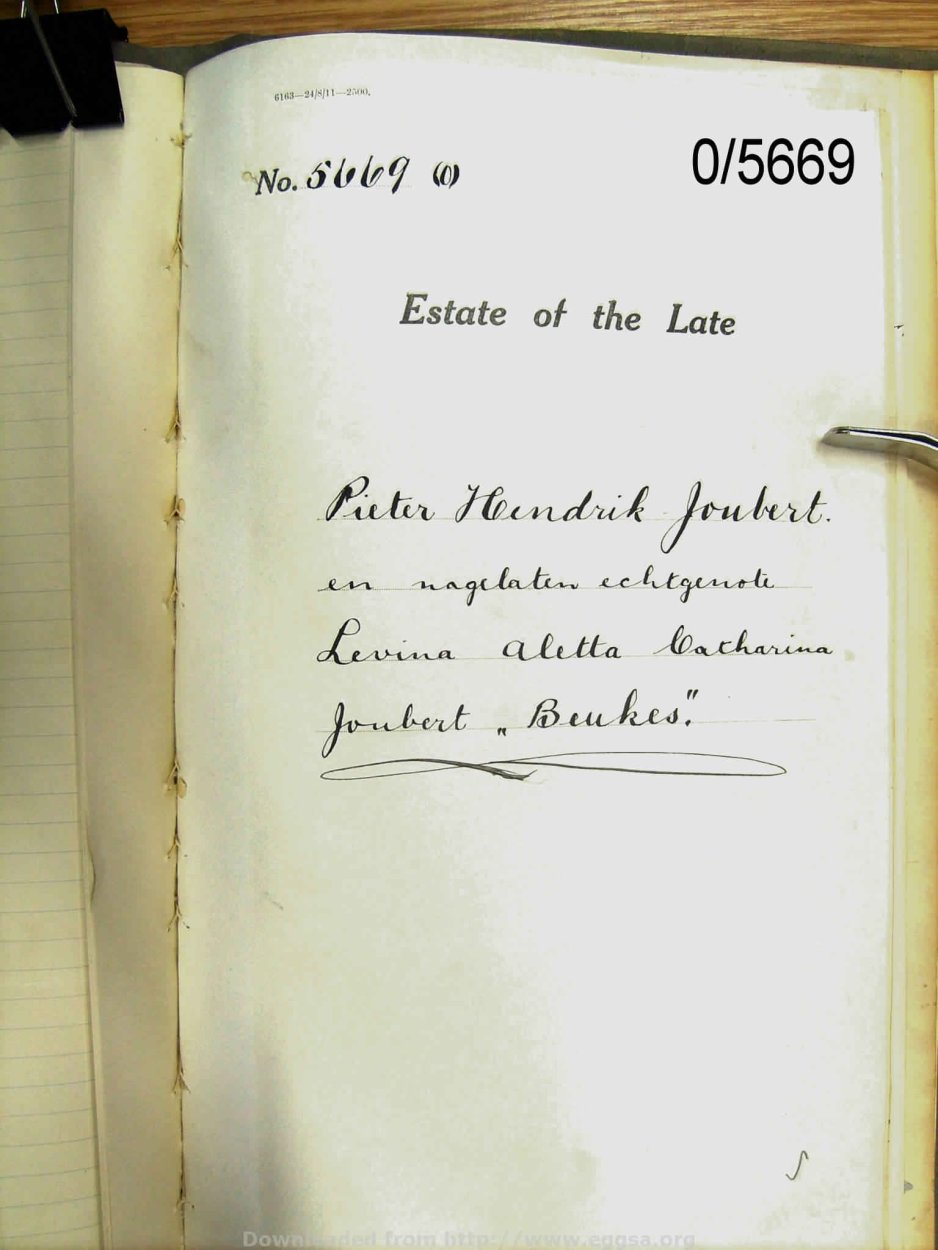 6163—24/8/11—2500.
No. 5669 (0)
0/5669
Estate of the Late
Pieter Hendrik Joubert.
en nagelaten echtgenote
Levina Aletta Catharina
Joubert „Beukes".
Downloaded from http://www.eggsa.org